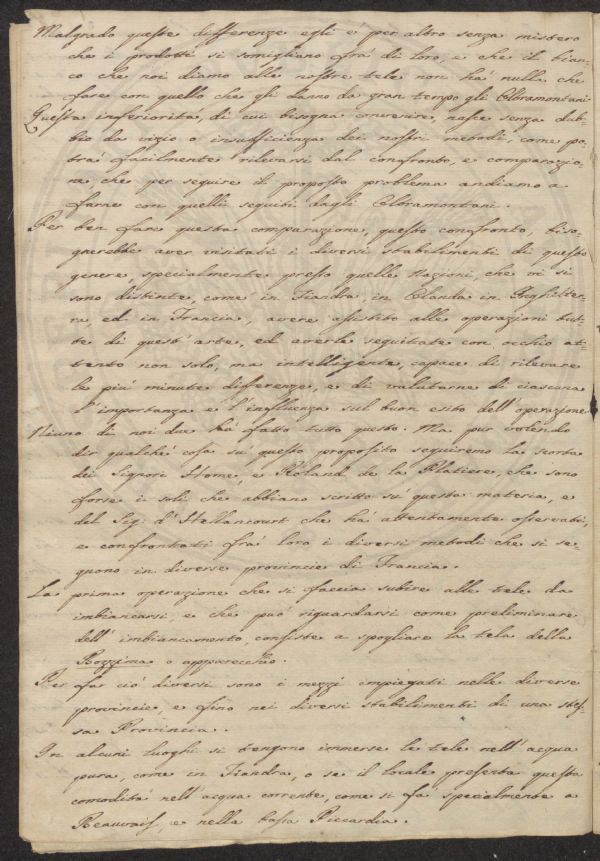 Malgrado queste differenze egli è per altro senza mistero
che i prodotti si somigliano frà di loro, e che il bian-
co che noi diamo alle nostre tele non hà nulla che
fare con quello che gli danno da gran tempo gli Oltramontani
Questa inferiorità, di cui bisogna convenire, nasce senza dub-
bio da vizio o insufficienza dei nostri metodi, come po-
trà facilmente rilevarsi dal confronto, e comparazio-
ne che per seguire il proposto problema andiamo a
farne con quelli seguiti dagli Oltramontani.
Per ben fare questa comparazione, questo confronto, biso-
gnerebbe aver visitati i diversi stabilimenti di questo
genere, specialmente presso quelle Nazioni, che vi si
sono distinte, come in Fiandra, in Olanda in Inghilter-
ra, ed in Francia, avere assistito alle operazioni tut-
te di quest'arte, ed averle seguitate con occhio at-
tento non solo, ma intelligente, capace di rilevare
le più minute differenze, e di valutarne di ciascuna
l'importanza e l'influenza sul buon esito dell'operazione
Niuno di noi due hà fatto tutto questo. Ma pur volendo
dir qualche cosa su questo proposito seguiremo la scorta
dei Signori Home, e Roland de la Platiere, che sono
forse i soli che abbiano scritto sù questa materia, e
del Sig. d'Hellancourt che hà attentamente osservati,
e confrontati frà loro i diversi metodi che si se-
guono in diverse provincie di Francia.
La prima operazione che si faccia subire alle tele da
imbiancarsi, e che può riguardarsi come preliminare
dell'imbiancamento, consiste a spogliare la tela della
Bozzima o apparecchio.
Per far ciò diversi sono i mezzi impiegati nelle diverse
provincie, e fino nei diversi stabilimenti di una stes-
sa Provincia.
In alcuni luoghi si tengono immerse le tele nell'acqua
pura, come in Fiandra, o se il locale presenta questa
comodità nell'acqua corrente, come si fà specialmente a
Beauvais, e nella bassa Piccardia.